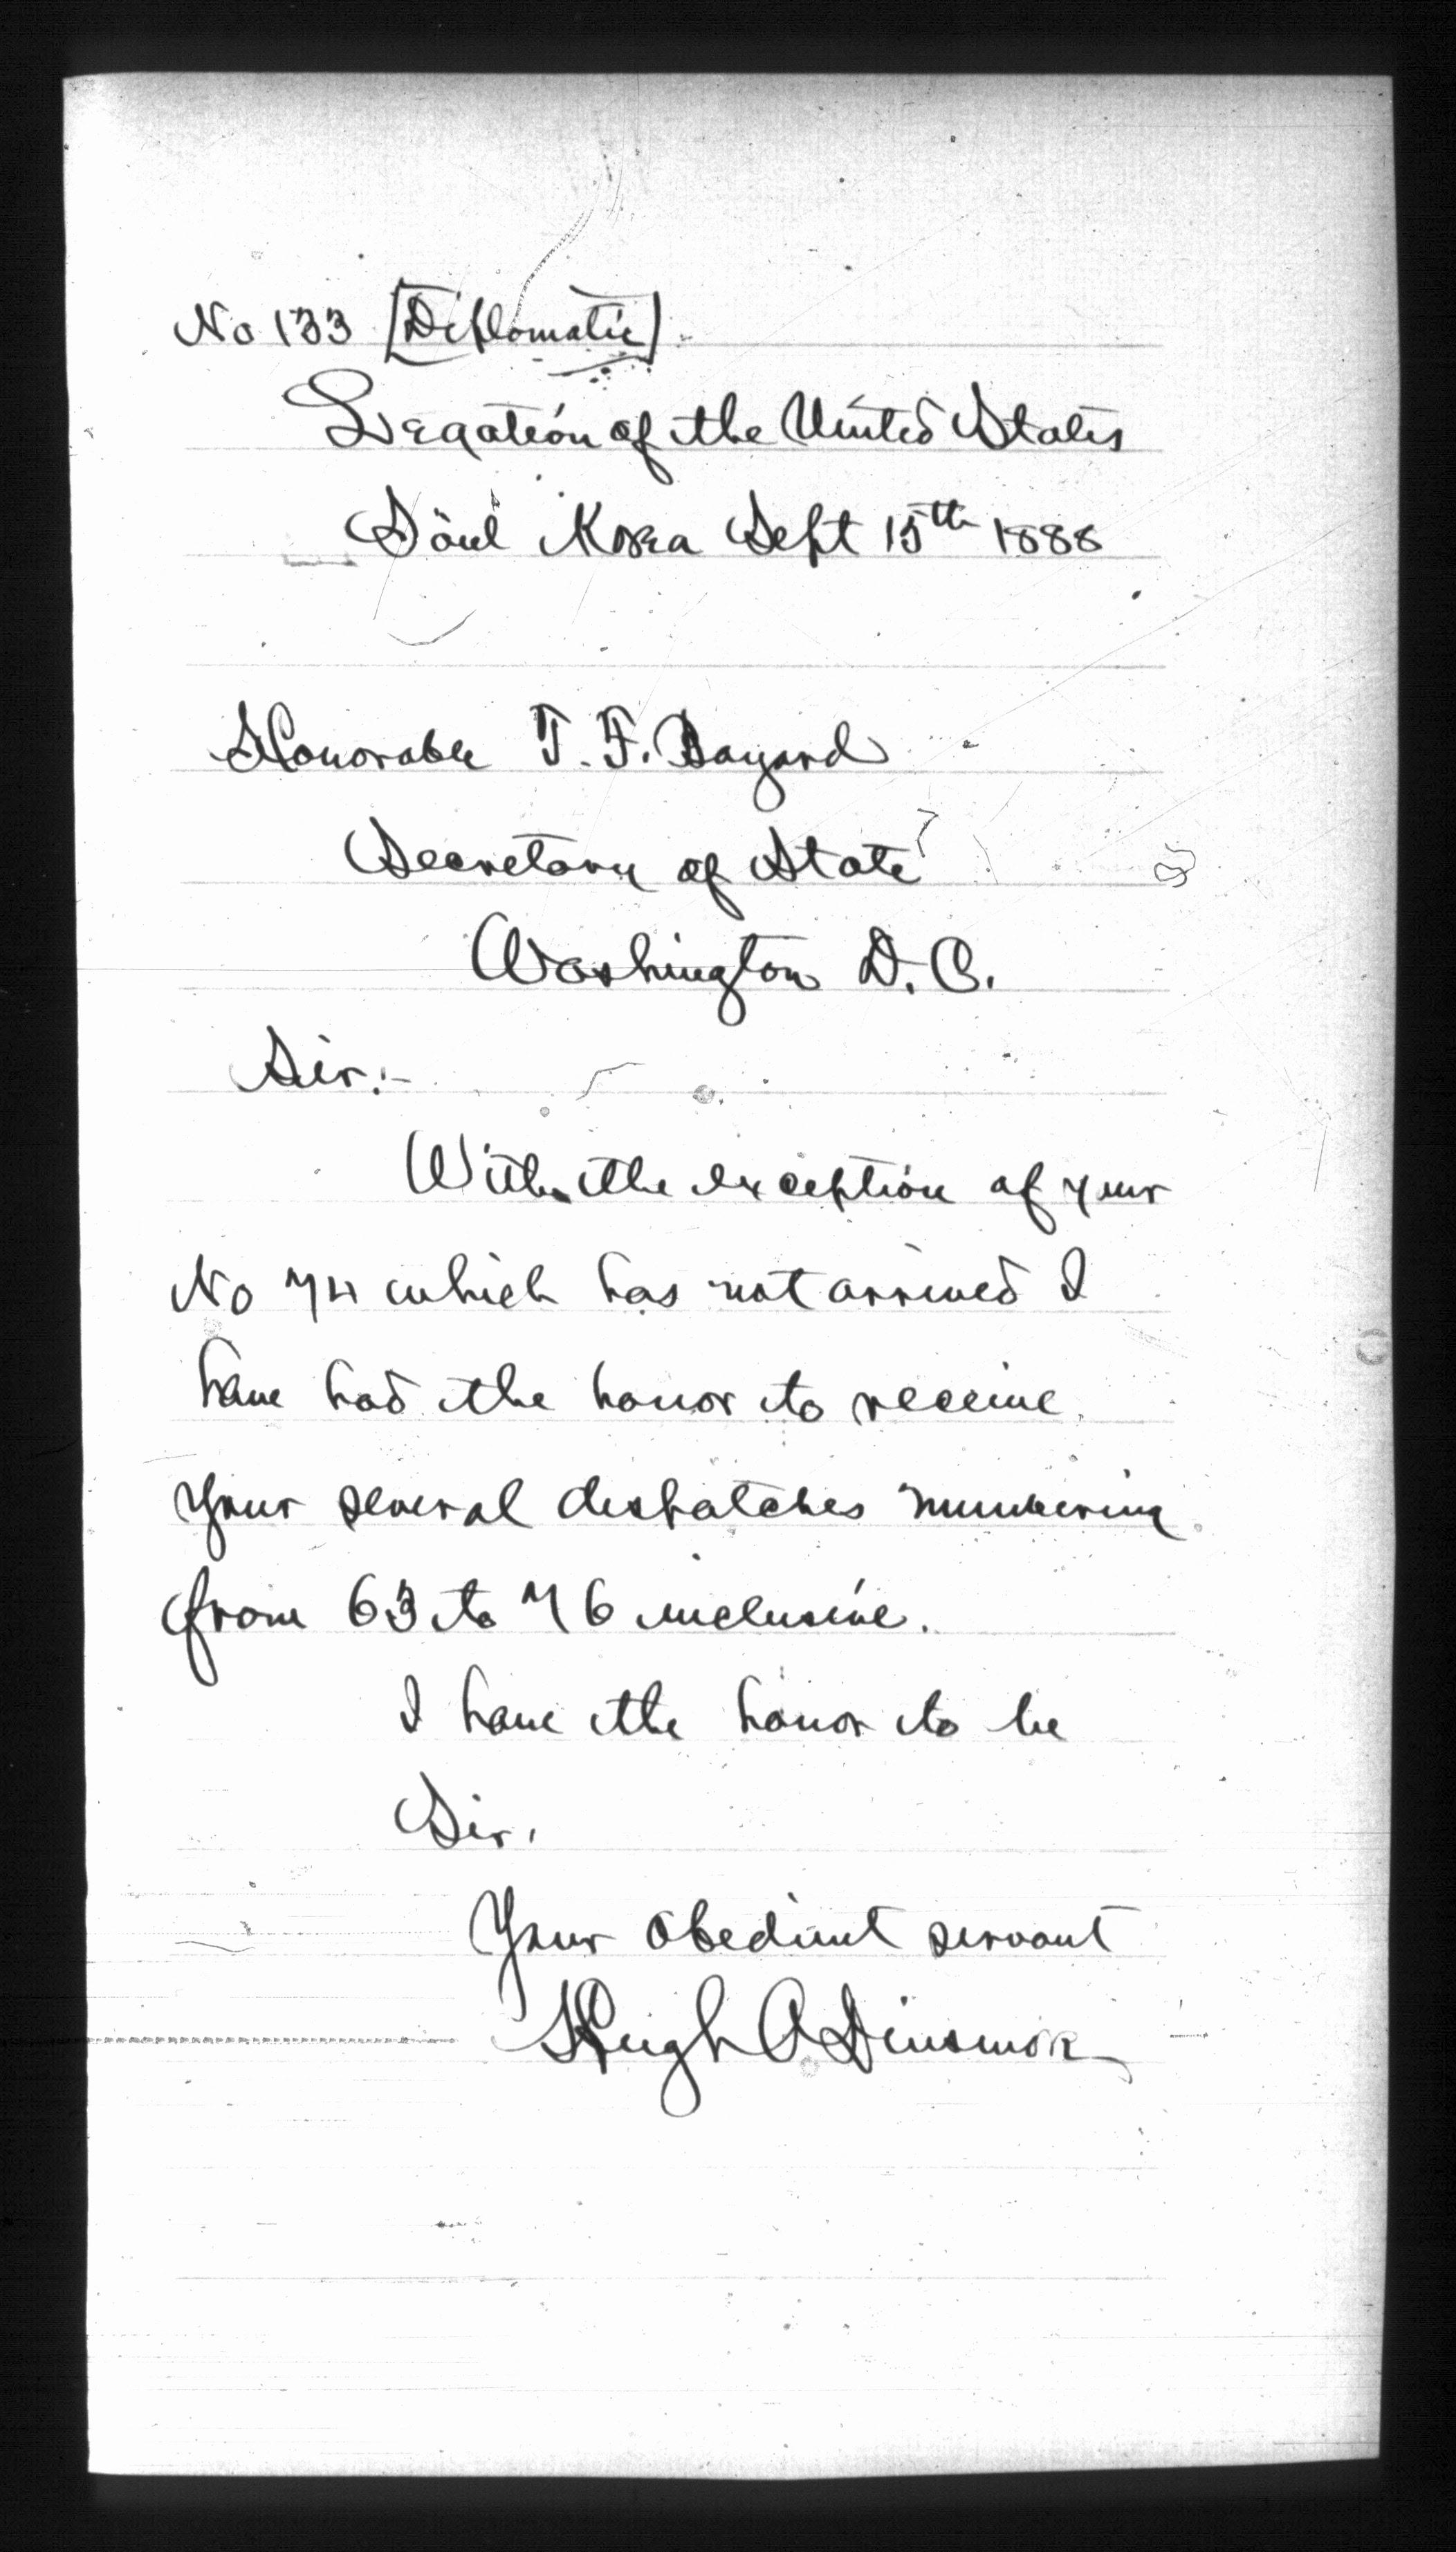 No 133 [Diplomatic]
Legation of the United States
Söul Korea Sept 15th 1888
Honorable T. F. Bayard
Secretary of State
Washington D. C.
Sir:-
With the exception of your
No 74 which has not arrived I
have had the honor to receive
your several dispatches numbering
from 63 to 76 inclusive.
I have the honor to be
Sir,
Your obedient servant
Hugh A Dinsmore